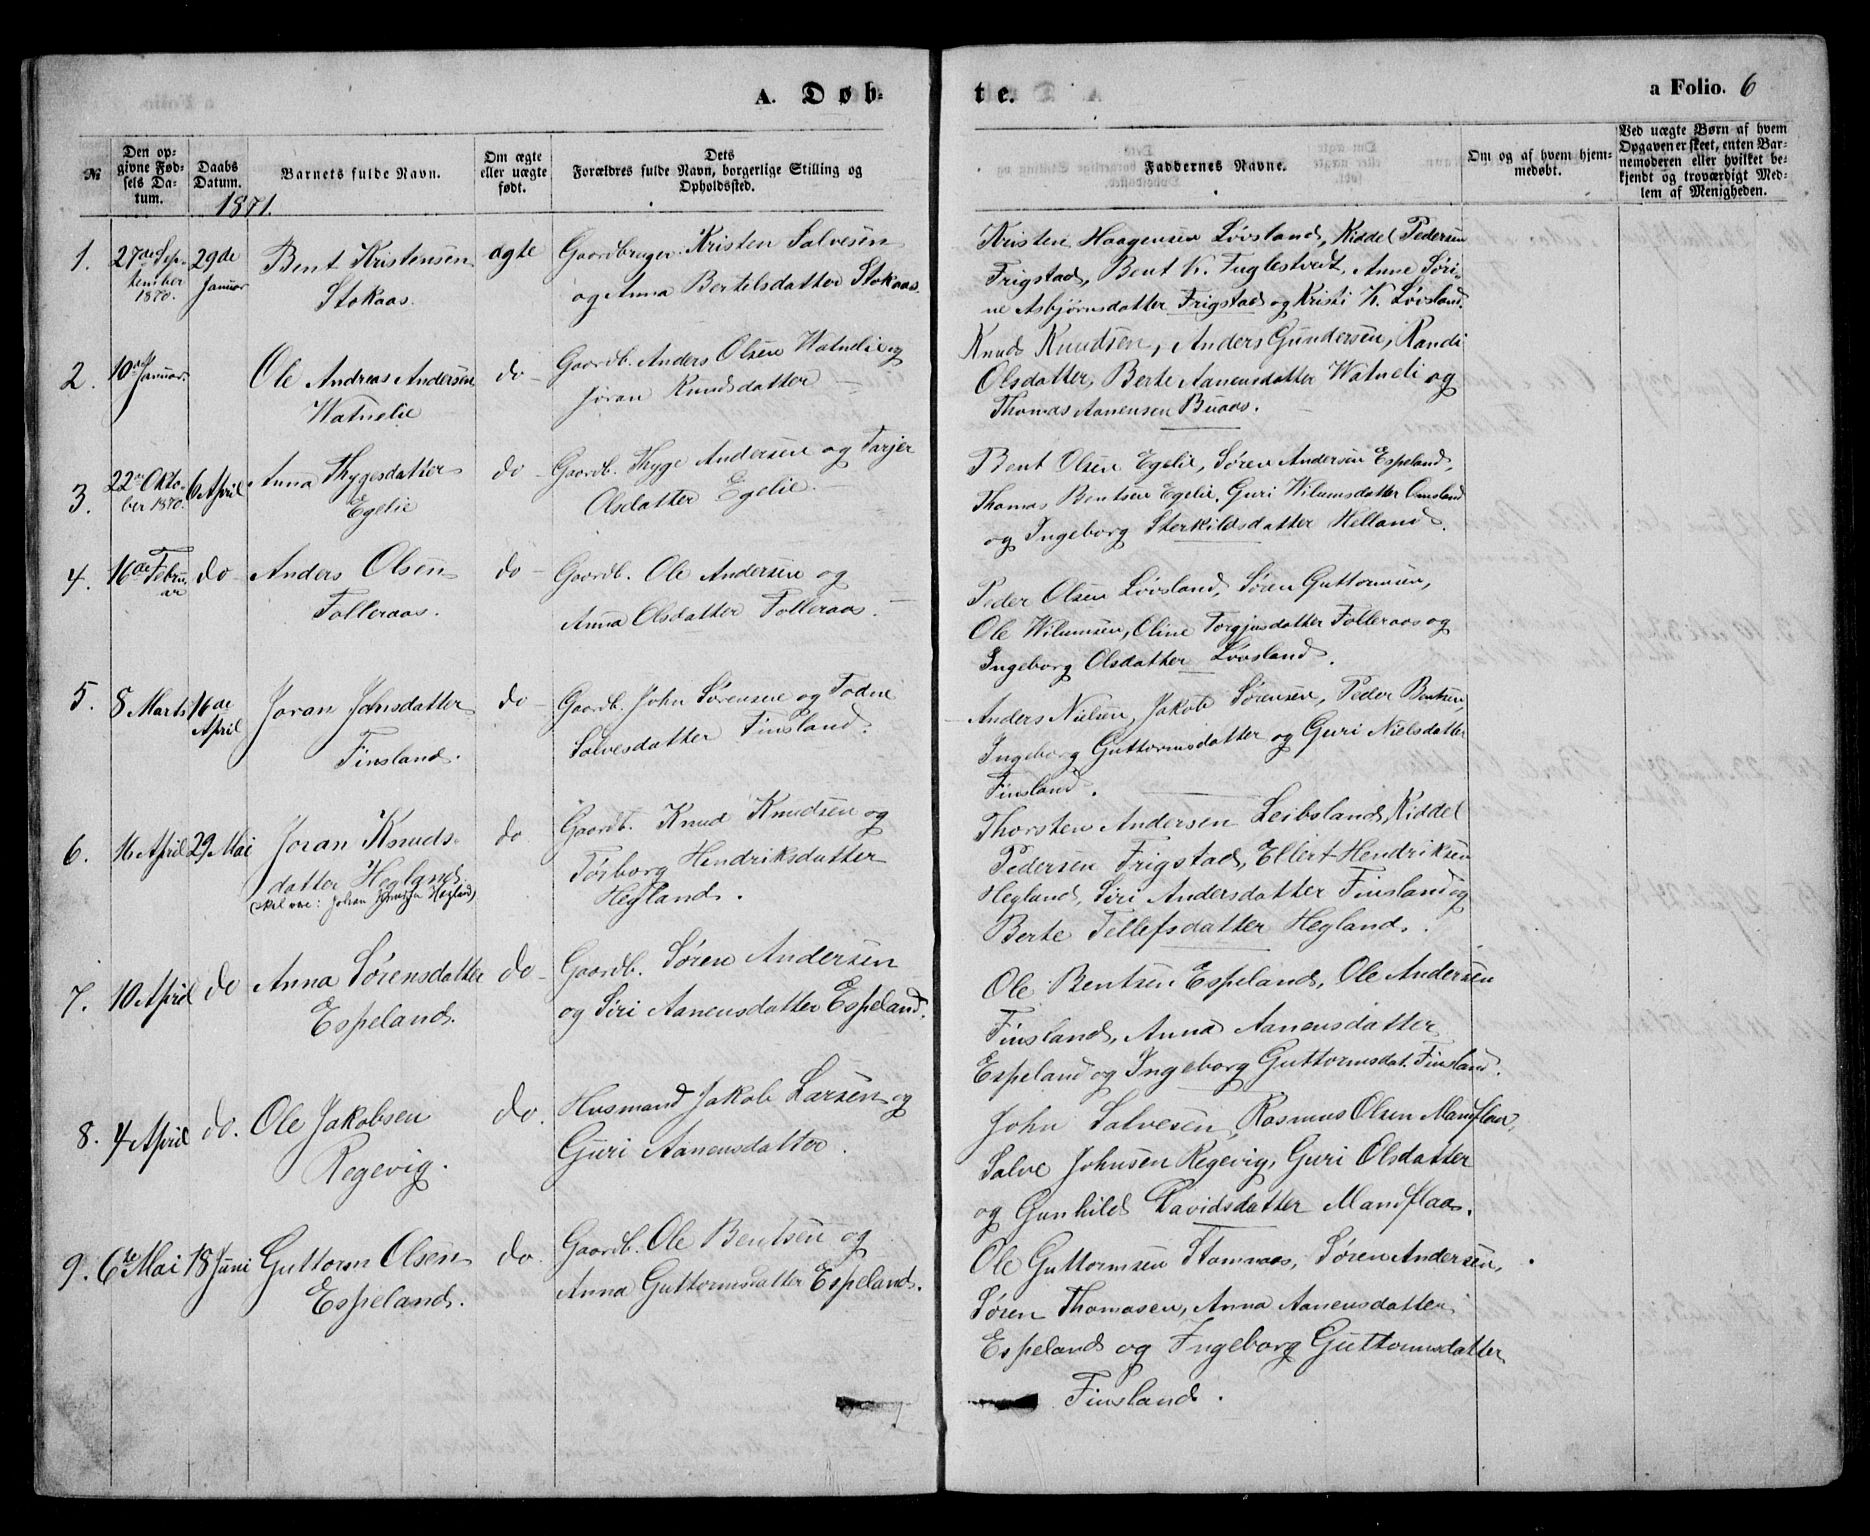 A. Døb-
te.
a Folio. 6
№
Den opgivne Fødsels Datum.
Daabs Datum.
Barnets fulde Navn.
Om ægte eller uægte født.
Dets Forældres fulde Navn, borgerlige Stilling og Opholdssted.
Faddernes Navne.
Om og af hvem hjemmedøbt.
Ved uægte Børn af hvem Opgaven er skeet, enten Barnemoderen eller hvilket bekjendt og troværdigt Medlem af Menigheden.
1871.
1. 27de September 1870. 29de Januar
Bent Kristensen
Stokaas.
ægte
Gaardbruger Kristen Salvesen
og Anna Bertelsdatter Stokaas.
Kristen Haagensen Lövsland, Kiddel Pedersen
Frigstad, Bent K. Fuglestvedt, Anne Søri-
ne Asbjørnsdatter Frigstad og Kristi K. Lövsland.
2. 10de Januar.
Ole Andreas Andersen
Watnelie
do
Gaardb. Anders Olsen Watnelie og
Jøran Knudsdatter
Knud Knudsen, Anders Gundersen, Randi
Olsdatter, Berte Aanensdatter Watneli og
Thomas Aanensen Buaas.
3. 22de Oktober 1870. 6 April
Anna Thygesdatter
Egelie
do
Gaardb. Thyge Andersen og Tarjer
Olsdatter Egelie.
Bent Olsen Egelie, Søren Andersen Espeland,
Thomas Bentsen Egelie, Guri Wilumsdatter
og Ingeborg Sterkildsdatter Helland.
4. 16de Februar do
Anders Olsen
Folleraas.
do
Gaardb. Ole Andersen og
Anna Olsdatter Folleraas.
Peder Olsen Lövsland, Søren Guttormsen,
Ole Wilumsen, Oline Torgjusdatter Folleraas og
Ingeborg Olsdatter Lövsland.
5. 8 Marts 16de April
Joran Johnsdatter
Finsland.
do
Gaardb. John Sørensen og Todne
Salvesdatter Finsland.
Anders Nielsen, Jakob Sørensen, Peder Bentsen,
Ingeborg Guttormsdatter og Guri Nielsdatter
Finsland.
6. 16 April 29 Mai
Joran Knuds-
datter Hegland.
(skal være: Johan Knudsen Hegland)
do
Gaardb. Knud Knudsen og
Torborg Hendriksdatter
Hegland.
Thorsten Andersen Leibsland, Kiddel
Pedersen Frigstad, Ellert Hendriksen
Hegland, Siri Andersdatter Finsland og
Berte Tellefsdatter Hegland.
7. 10 April do
Anna Sørensdatter
Espeland.
do
Gaardb. Søren Andersen
og Siri Aanensdatter Espeland.
Ole Bentsen Espeland, Ole Andersen
Finsland, Anna Aanensdatter
Espeland og Ingeborg Guttormsdat. Finsland.
8. 4 April do.
Ole Jakobsen
Regevig.
do.
Husmand Jakob Larsen og
Guri Aanensdatter.
John Salvesen, Rasmus Olsen Manflaa,
Salve Johnsen Regevig, Guri Olsdatter
og Gunhild Davidsdatter Manflaa.
9. 6te Mai 18 Juni
Guttorm Olsen
Espeland.
do.
Gaardb. Ole Bentsen og
Anna Guttormsdatter Espeland.
Ole Guttormsen Stomnaas, Søren Andersen,
Søren Thomasen, Anna Aanensdatter
Espeland og Ingeborg Guttormsdatter
Finsland.